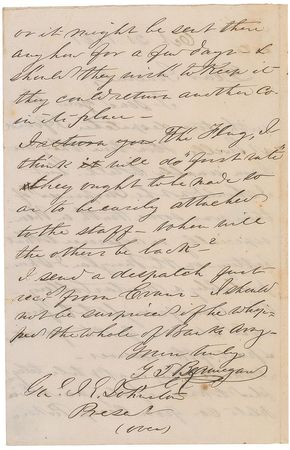 or it might be sent there
any how for a few days &
should they wish to keep it
they could return another Co
in its place —
I return you the Flag, I
think it will do "first rate"
they ought to be made so
as to be easily attached
to the staff — when will
the others be back?
I send a despatch just
recd from Evans — I should
not be surprised if he whip-
ped the whole of Banks army —
Yours truly
G. T. Beauregard
Genl J. E. Johnston
Present
(over)